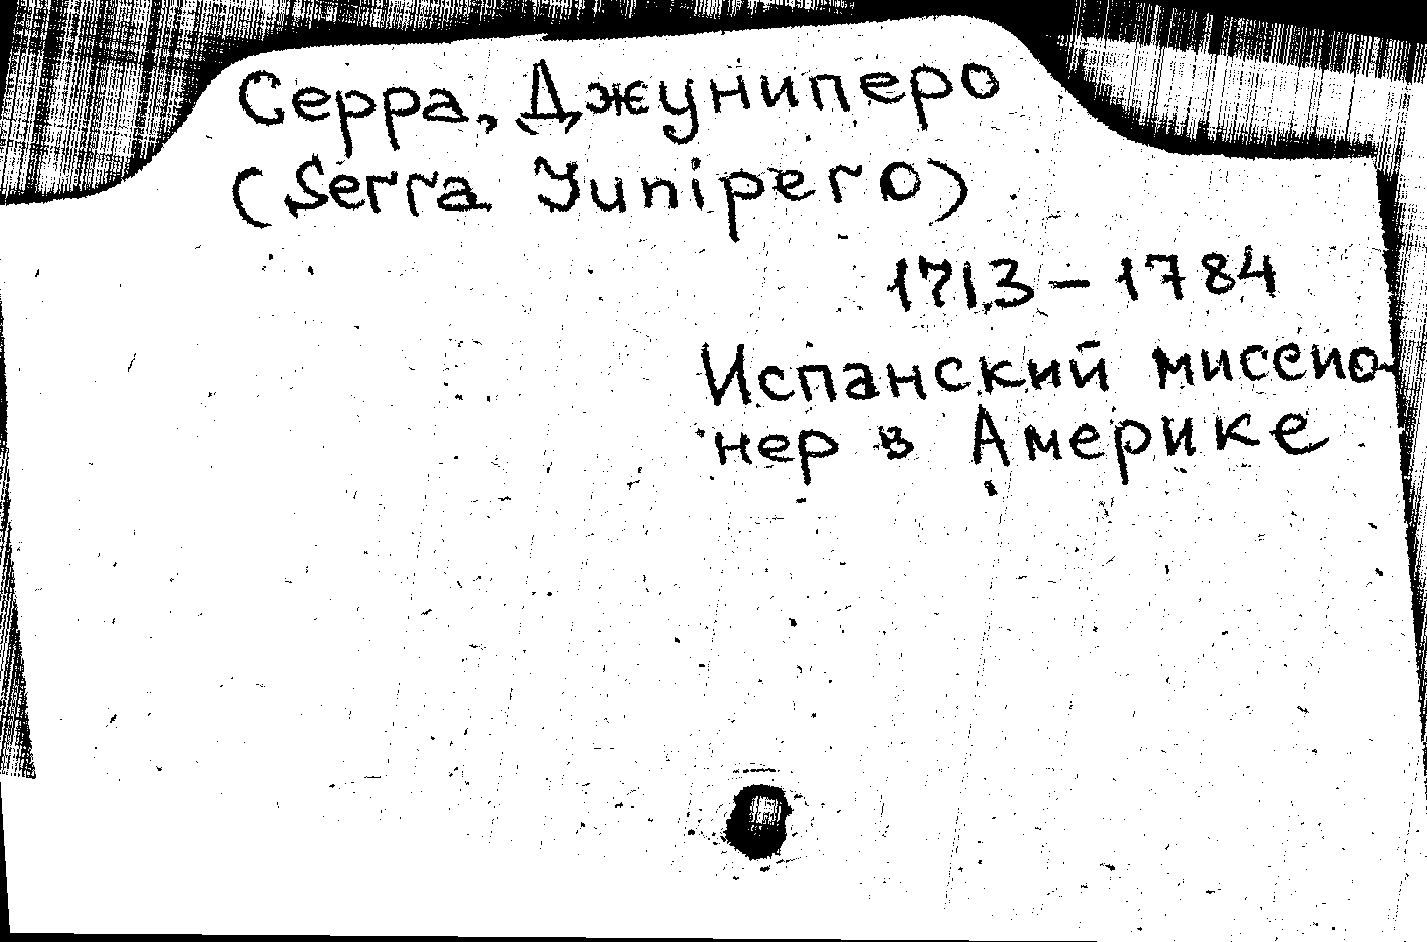 Серра, Джуниперо
(Serra Junipero)
1713 – 1784
Испанский миссио-
нер в Америке